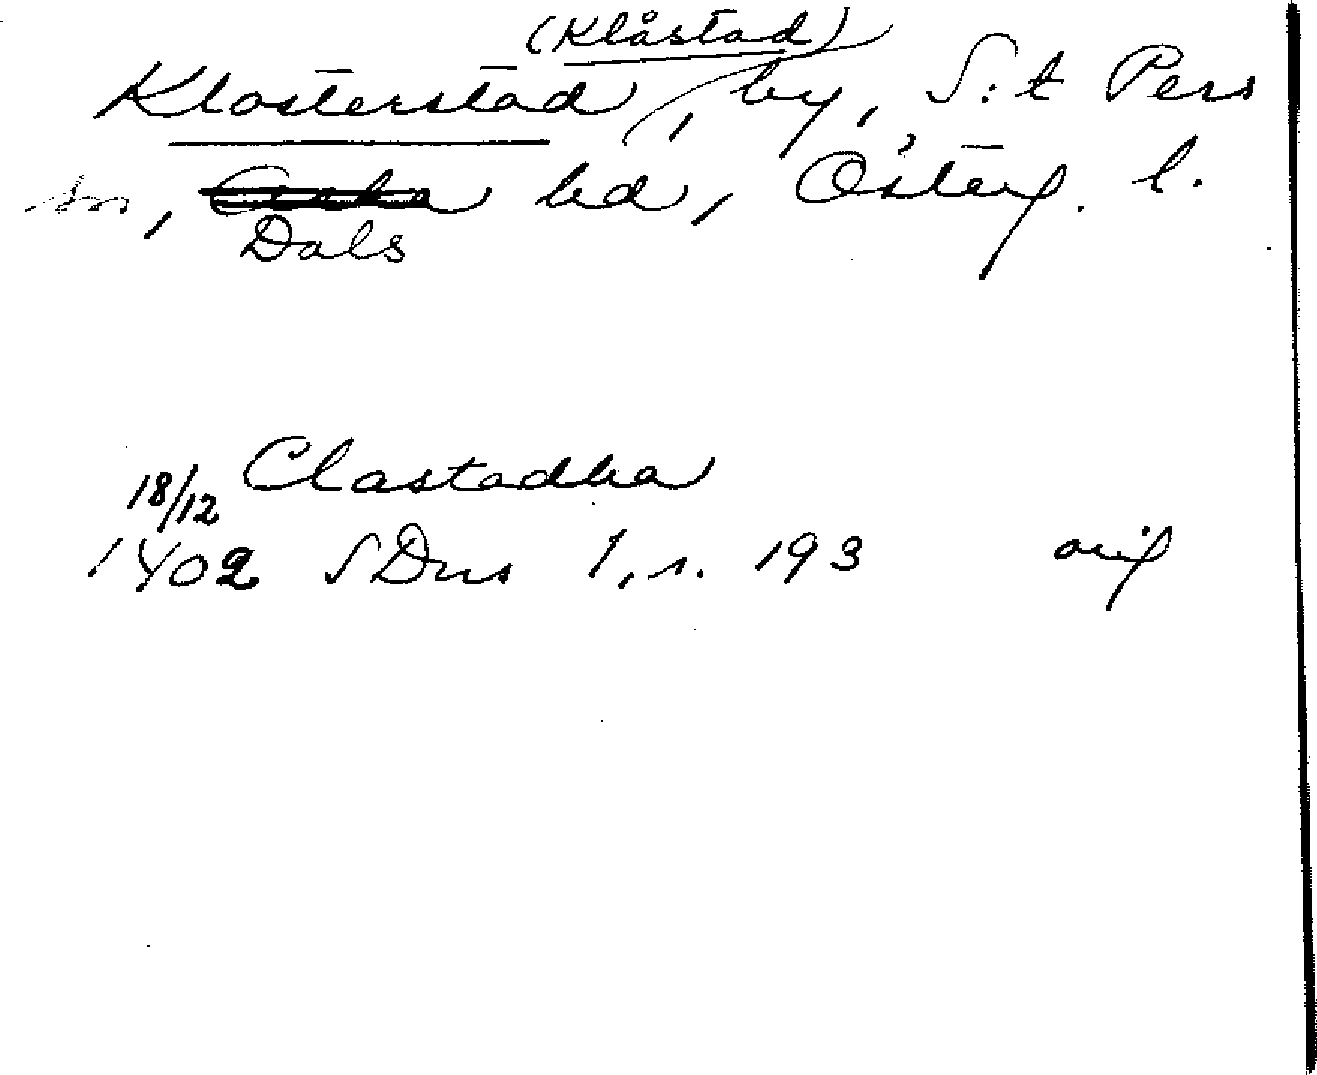 (Klåstad)
Klosterstad, by, S:t Pers
sn, hd, Österg. l.
Dals
18/12 Clastadha
1402 SDns 1, s. 193 orig